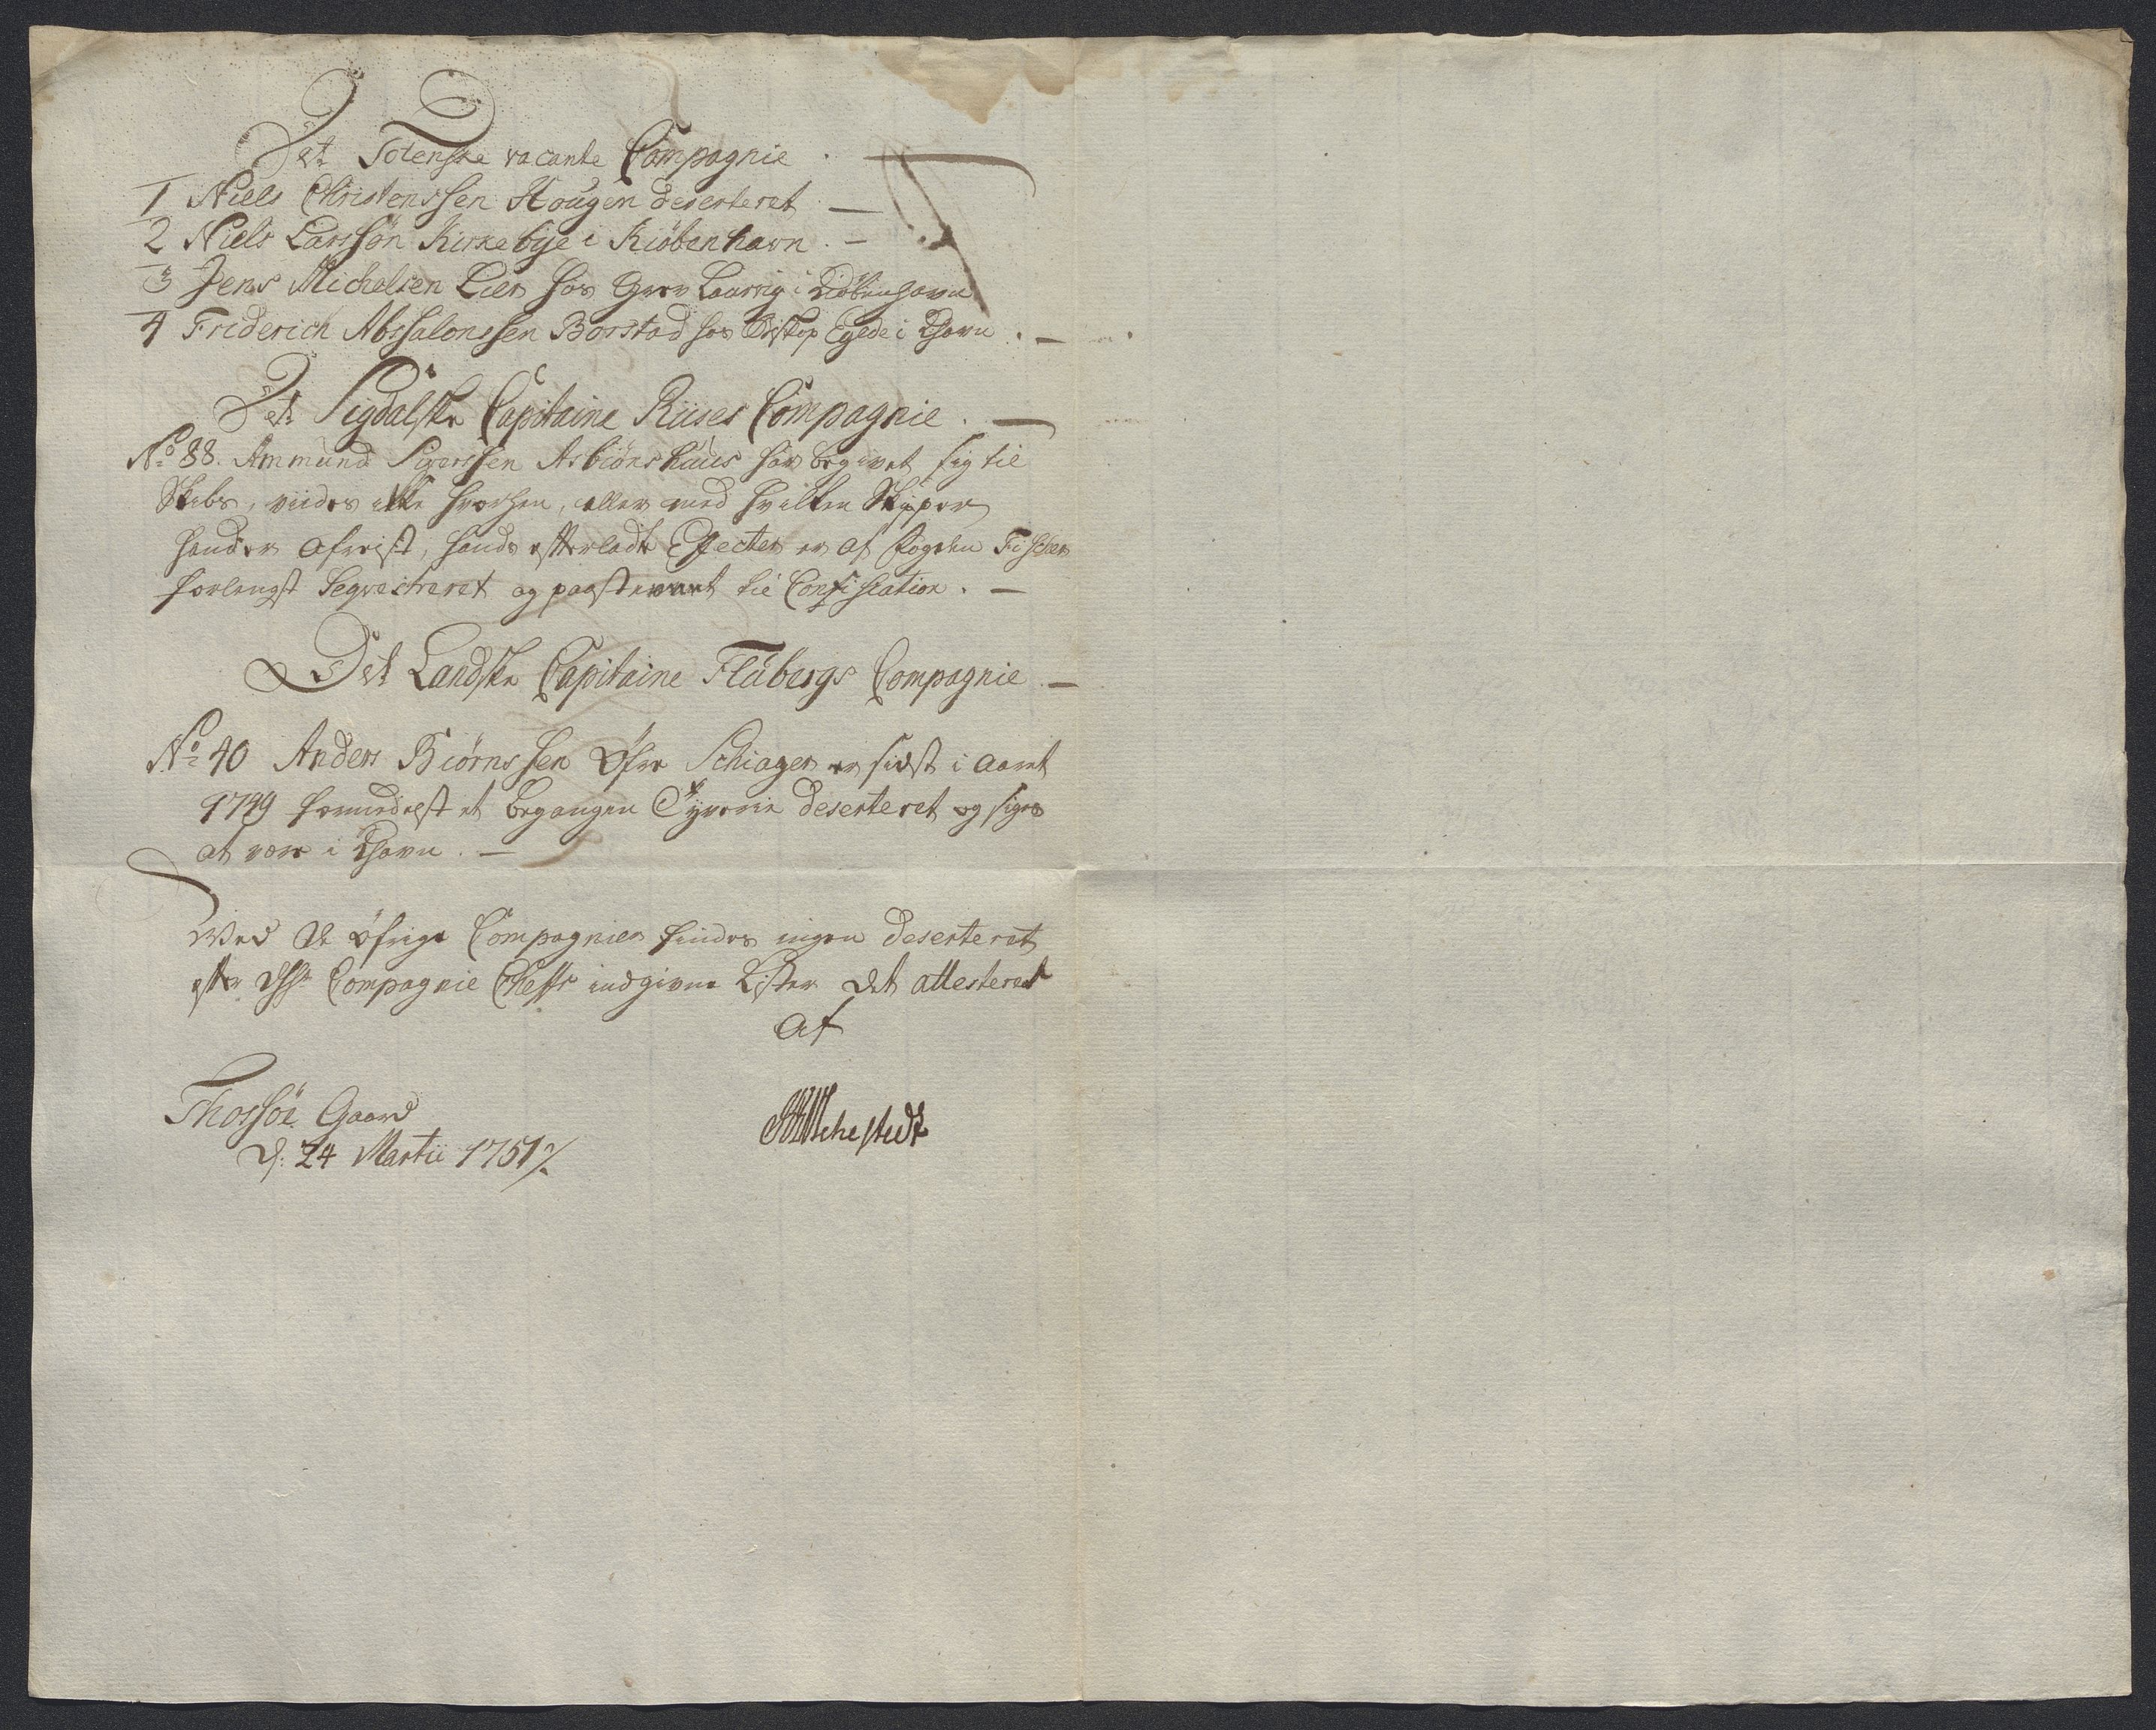 Det Totenske vacante Compagnie . —
1 Niels Christenssen Hougen deserteret —
2 Niels Larssøn Kirkebye i Kiøbenhavn . —
3 Jens Michelsen Lier hos Grev Laurvig i Kiøbenhavn
4 Friderich Abssalonssen Borstad hos Biskop Egede i Khavn . —
Det Sigdalske Capitaine Riises Compagnie . —
No 88. Ammund Sigerssen Asbiørnshuus har begivet sig til
Skibs, viides ikke hvorhen, eller med hvilken Skipper
hand er afreist, hands efterladte Effecter er af Fogden Fischer
forlengst Seqvestreret og paastevnet til Confiscation . —
Det Landske Capitaine Flubergs Compagnie —
No 40 Anders Biørnssen Øfre Schiager er sidst i Aaret
1749 formedelst et begangen Tyverie deserteret og siges
at være i Khavn . —
Ved de øfrige Compagnier findes ingen deserteret
efter Compagnie Cheffs indgivne Lister det attesteret
Af
Thossøe Gaard
d: 24 Martii 1751 ⁒
Sehestedt